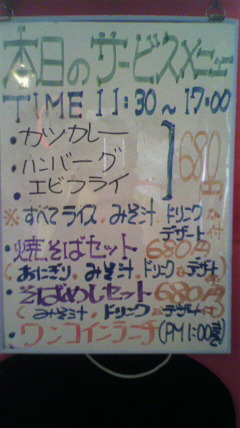 本日のサービスメニュー
TIME 11:30~17:00
・カツカレー
・ハンバーグ
・エビフライ
680円
※すべてライス、みそ汁、ドリンク
デザート
な付
・焼そばセット 680円
(おにぎり、みそ汁、ドリンク、デザート
・そばめしセット 680円
(みそ汁、ドリンク、デザート付)
・ワンコインランチ(PM1:00迄)